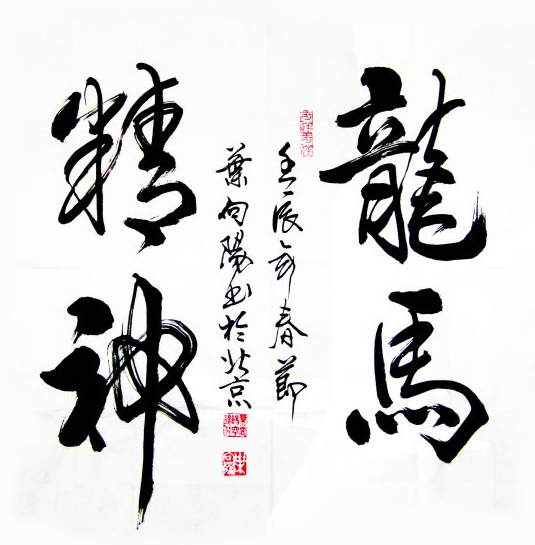 龍馬
精神
壬辰年春節
葉向陽書於北京